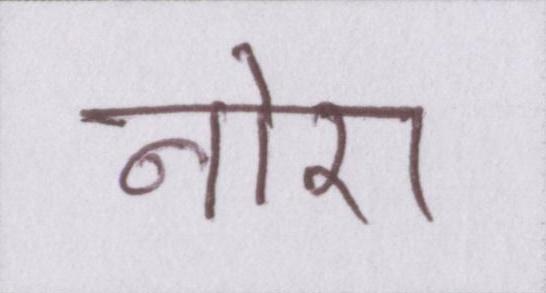 नोरा